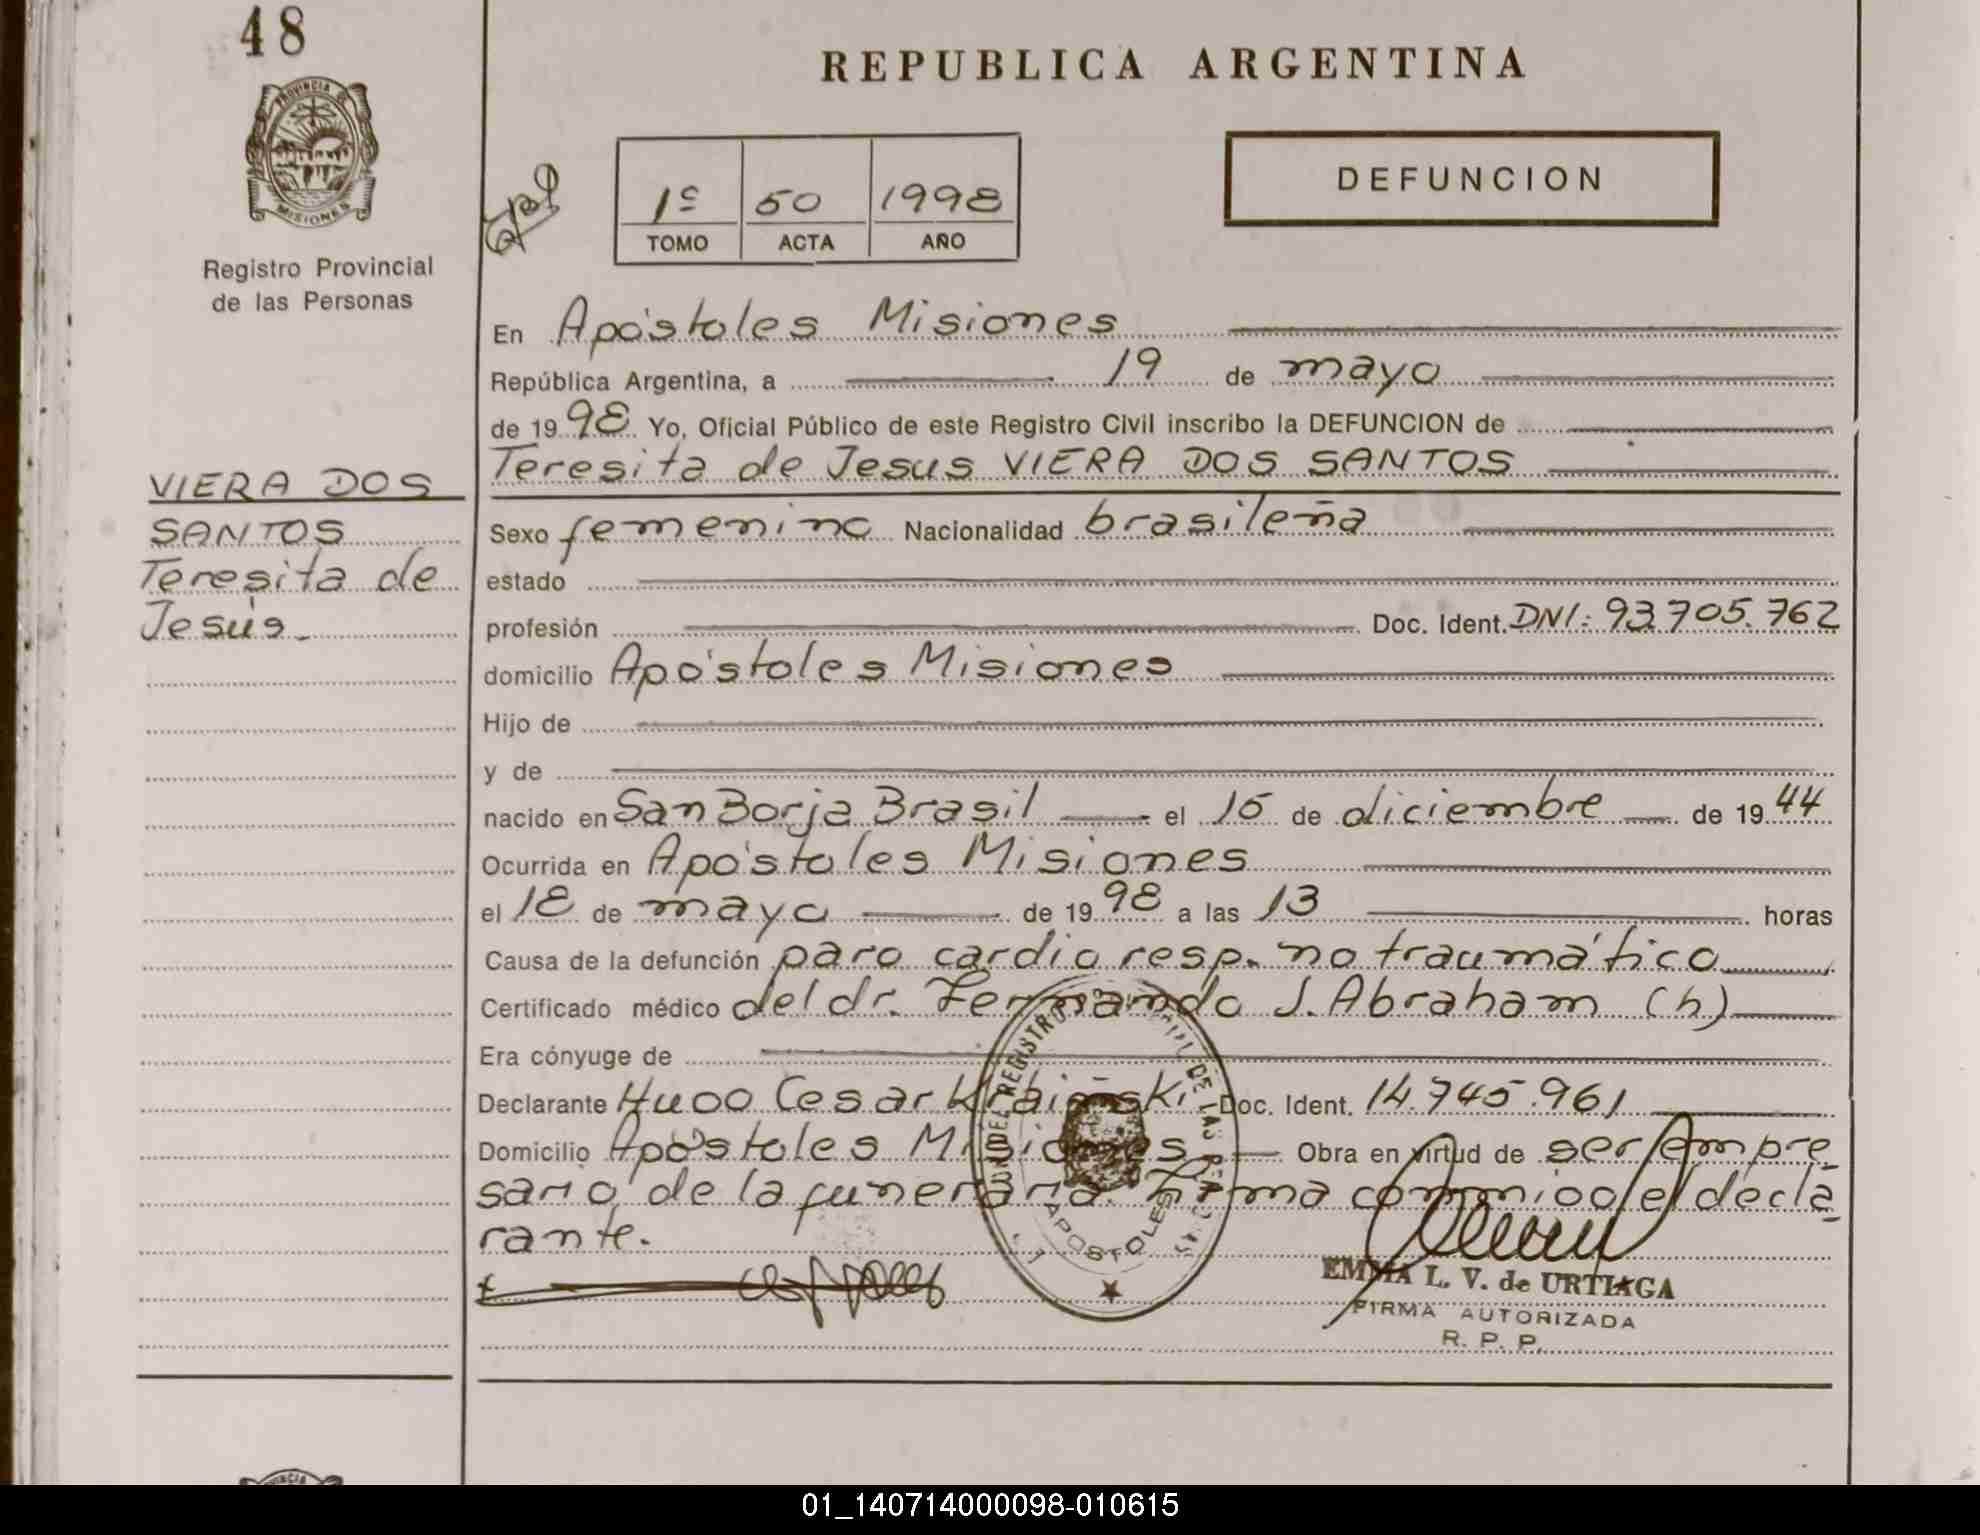 48
REPUBLICA ARGENTINA
PROVINCIA DE
MISIONES
Registro Provincial
de las Personas
1º 50 1998
TOMO ACTA AÑO
DEFUNCION
En Apóstoles Misiones
República Argentina, a 19 de mayo
de 1998 Yo, Oficial Público de este Registro Civil inscribo la DEFUNCION de
Teresita de Jesus VIERA DOS SANTOS
VIERA DOS
SANTOS
Teresita de
Jesús.
Sexo femenino Nacionalidad brasileña
estado
profesión Doc. Ident. DNI: 93.705.762
domicilio Apóstoles Misiones
Hijo de
y de
nacido en San Borja Brasil el 15 de diciembre de 1944
Ocurrida en Apóstoles Misiones
el 18 de mayo de 1998 a las 13 horas
Causa de la defunción paro cardio resp. no traumático
Certificado médico del dr. Fernando J. Abraham (h)
Era cónyuge de
Declarante Hugo Cesar Doc. Ident. 14.745.961
Domicilio Apóstoles Misiones Obra en virtud de ser empre
sario de la funeraria. Firma conmigo el decla
rante.
APOSTOLES
EMMA L. V. de URTIAGA
FIRMA AUTORIZADA
R. P. P.
01_140714000098-010615